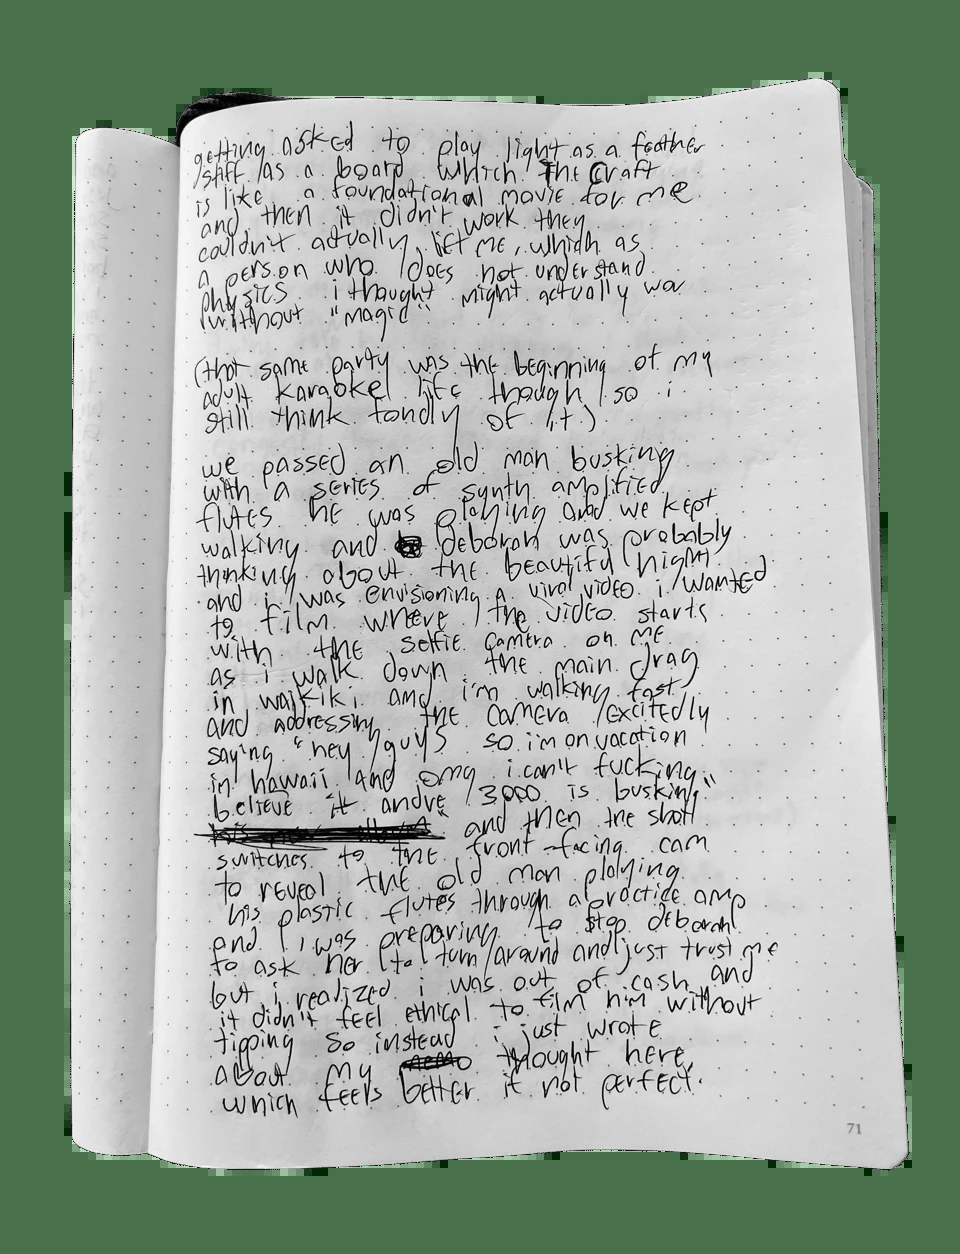 getting asked to play light as a feather
stiff as a board which The Craft
is like a foundational movie for me
and then it didn't work they
couldn't actually lift me, which as
a person who does not understand
physics i thought might actually wor
without "magic"
(that same party was the beginning of my
adult karaoke life though so i
still think fondly of it.)
we passed an old man busking
with a series of synth amplified
flutes he was playing and we kept
walking and deborah was probably
thinking about the beautiful night
and i was envisioning a viral video i wanted
to film where the video starts
with the selfie camera on me
as i walk down the main drag
in waikiki and i'm walking fast
and addressing the camera excitedly
saying "hey guys so i'm on vacation
in hawaii and omg i can't fucking
believe it andre 3000 is busking"
and then the shot
switches to the front-facing cam
to reveal the old man playing
his plastic flutes through a practice amp
and i was preparing to stop deborah
to ask her to turn around and just trust me
but i realized i was out of cash and
it didn't feel ethical to film him without
tipping so instead i just wrote
about my thought here,
which feels better if not perfect.
71